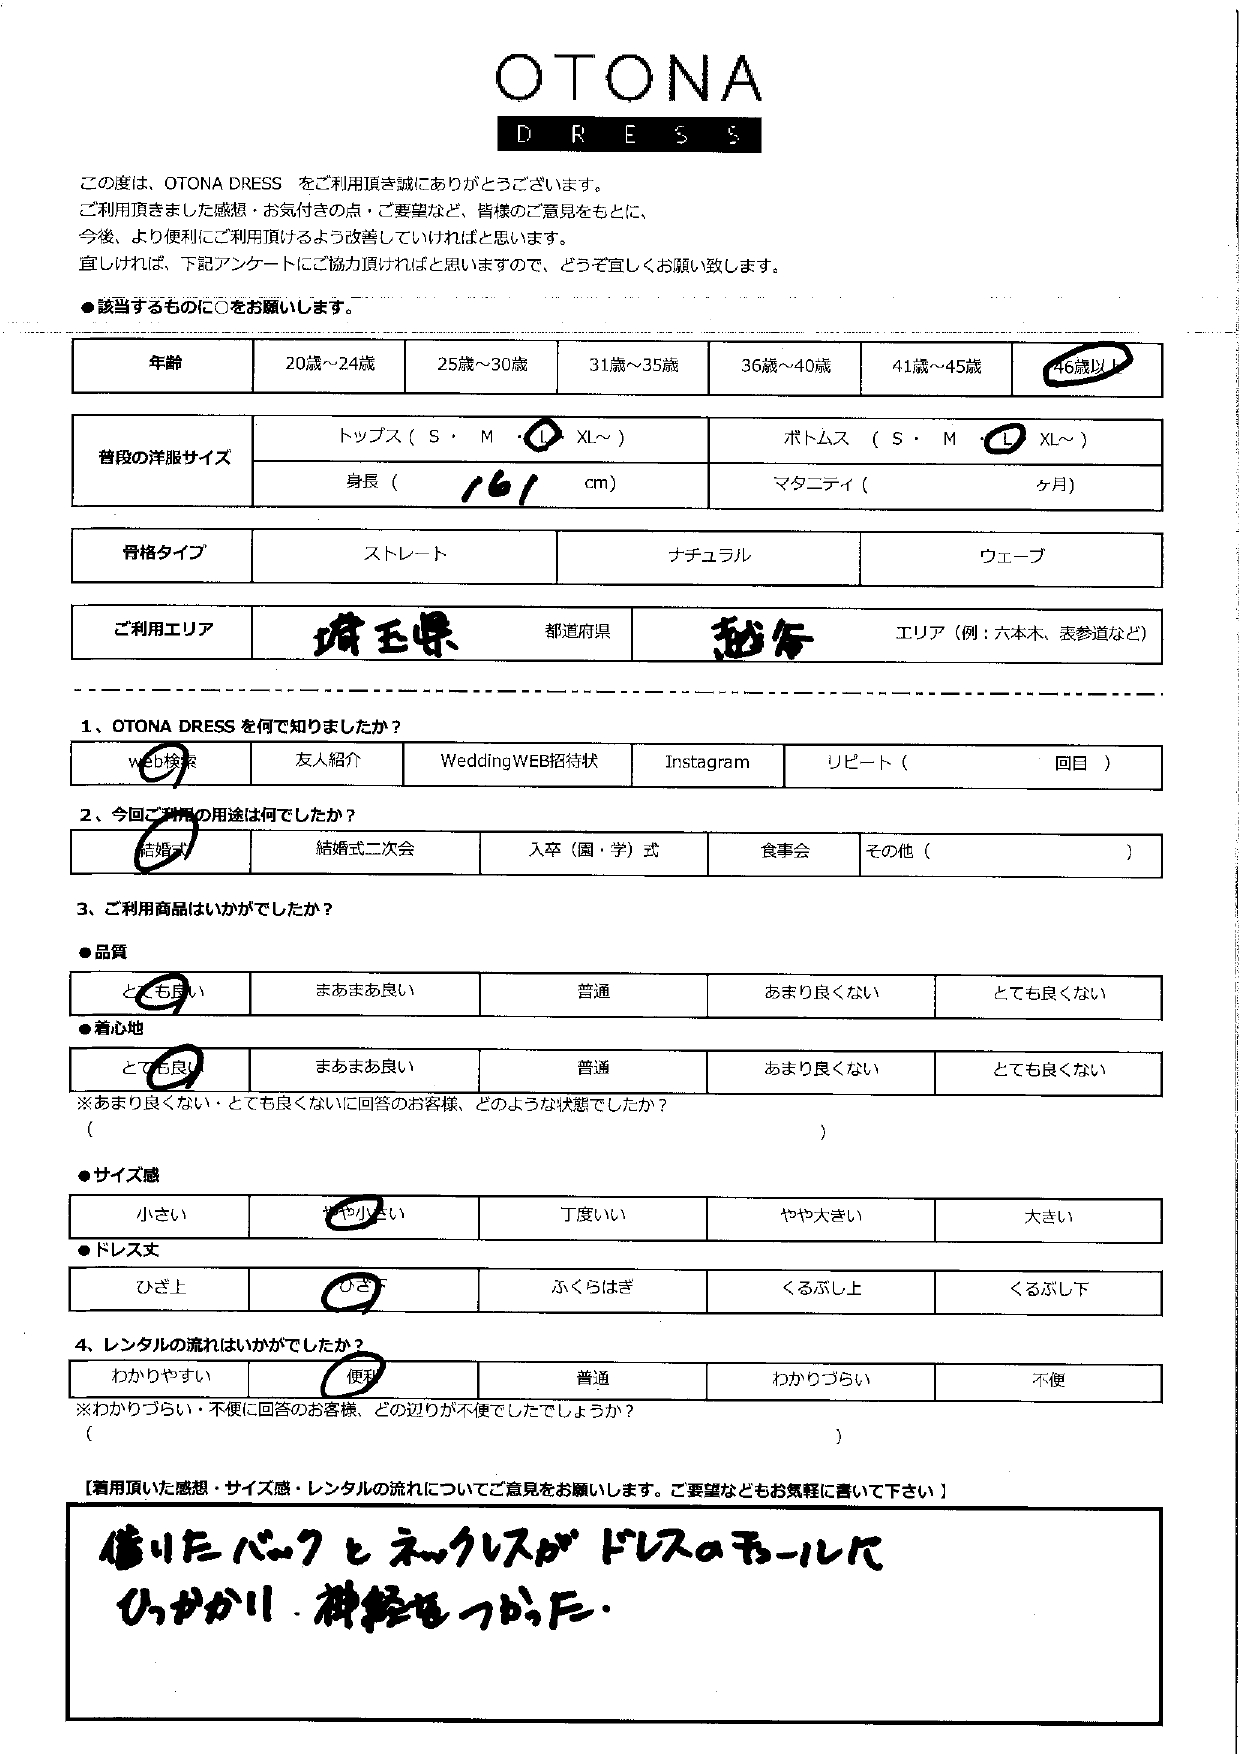 OTONA
DRESS
この度は、OTONA DRESS をご利用頂き誠にありがとうございます。
ご利用頂きました感想・お気付きの点・ご要望など、皆様のご意見をもとに、
今後、より便利にご利用頂けるよう改善していければと思います。
宜しければ、下記アンケートにご協力頂ければと思いますので、どうぞ宜しくお願い致します。
●該当するものに○をお願いします。
年齢 20歳～24歳 25歳～30歳 31歳～35歳 36歳～40歳 41歳～45歳 46歳以上
普段の洋服サイズ トップス ( S ・ M ・ L ・ XL～ ) ボトムス ( S ・ M ・ L XL～ )
身長 ( 161 cm) マタニティ ( ヶ月)
骨格タイプ ストレート ナチュラル ウェーブ
ご利用エリア 埼玉県 都道府県 越谷 エリア（例：六本木、表参道など）
1、OTONA DRESS を何で知りましたか？
web検索 友人紹介 WeddingWEB招待状 Instagram リピート ( 回目 )
2、今回ご利用の用途は何でしたか？
結婚式 結婚式二次会 入卒（園・学）式 食事会 その他 ( )
3、ご利用商品はいかがでしたか？
●品質
とても良い まあまあ良い 普通 あまり良くない とても良くない
●着心地
とても良い まあまあ良い 普通 あまり良くない とても良くない
※あまり良くない・とても良くないに回答のお客様、どのような状態でしたか？
( )
●サイズ感
小さい やや小さい 丁度いい やや大きい 大きい
●ドレス丈
ひざ上 ひざ下 ふくらはぎ くるぶし上 くるぶし下
4、レンタルの流れはいかがでしたか？
わかりやすい 便利 普通 わかりづらい 不便
※わかりづらい・不便に回答のお客様、どの辺りが不便でしたでしょうか？
( )
【着用頂いた感想・サイズ感・レンタルの流れについてご意見をお願いします。ご要望などもお気軽に書いて下さい】
借りたバックとネックレスがドレスのチュールに
ひっかかり、神経をつかった.